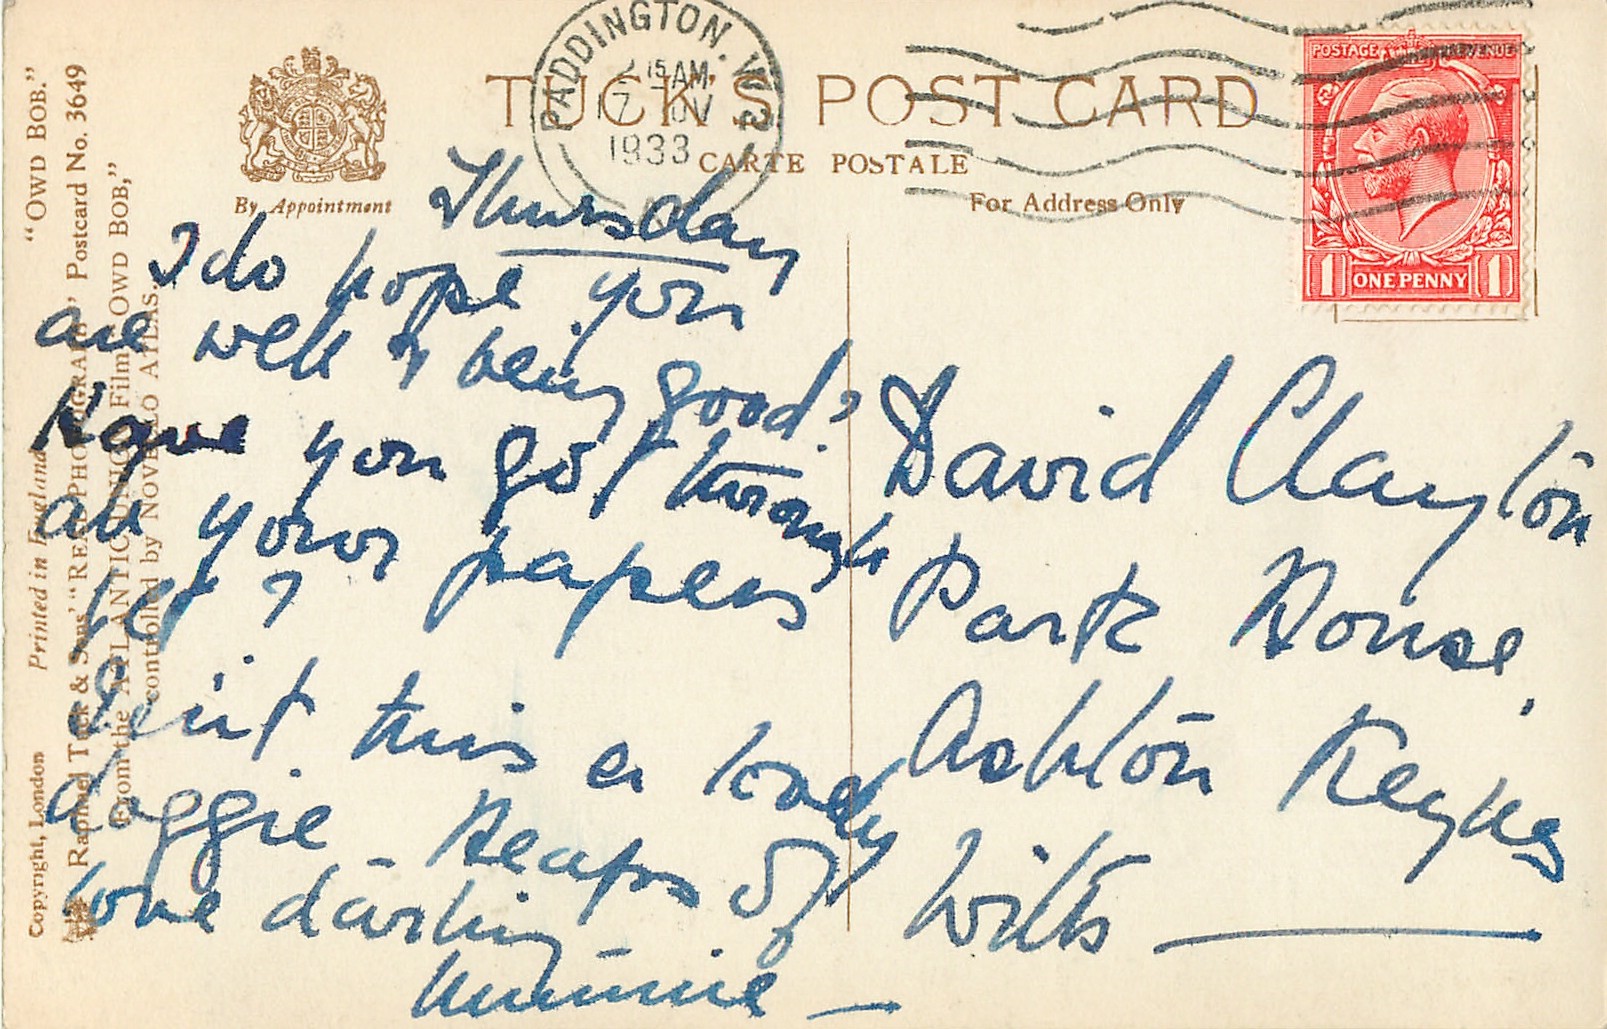 TUCK'S POST CARD
CARTE POSTALE
For Address Only
By Appointment
PADDINGTON. W.2
2 15 AM
17 NOV
1933
POSTAGE REVENUE
1 ONE PENNY 1
"OWD BOB." "OWD BOB."
Raphael Tuck & Sons' "REAL PHOTOGRAPH" Postcard No. 3649
From the ATLANTIC UNION Film "OWD BOB,"
controlled by NOVELLO ATLAS.
Copyright, London Printed in England
Thursday
I do hope you
are well & being good?
Have you got through
all your papers
yet?
Isn't this a lovely
doggie. Heaps of
love darling —
Mummie —
David Clayton
Park House.
Ashton Keynes
Wilts —